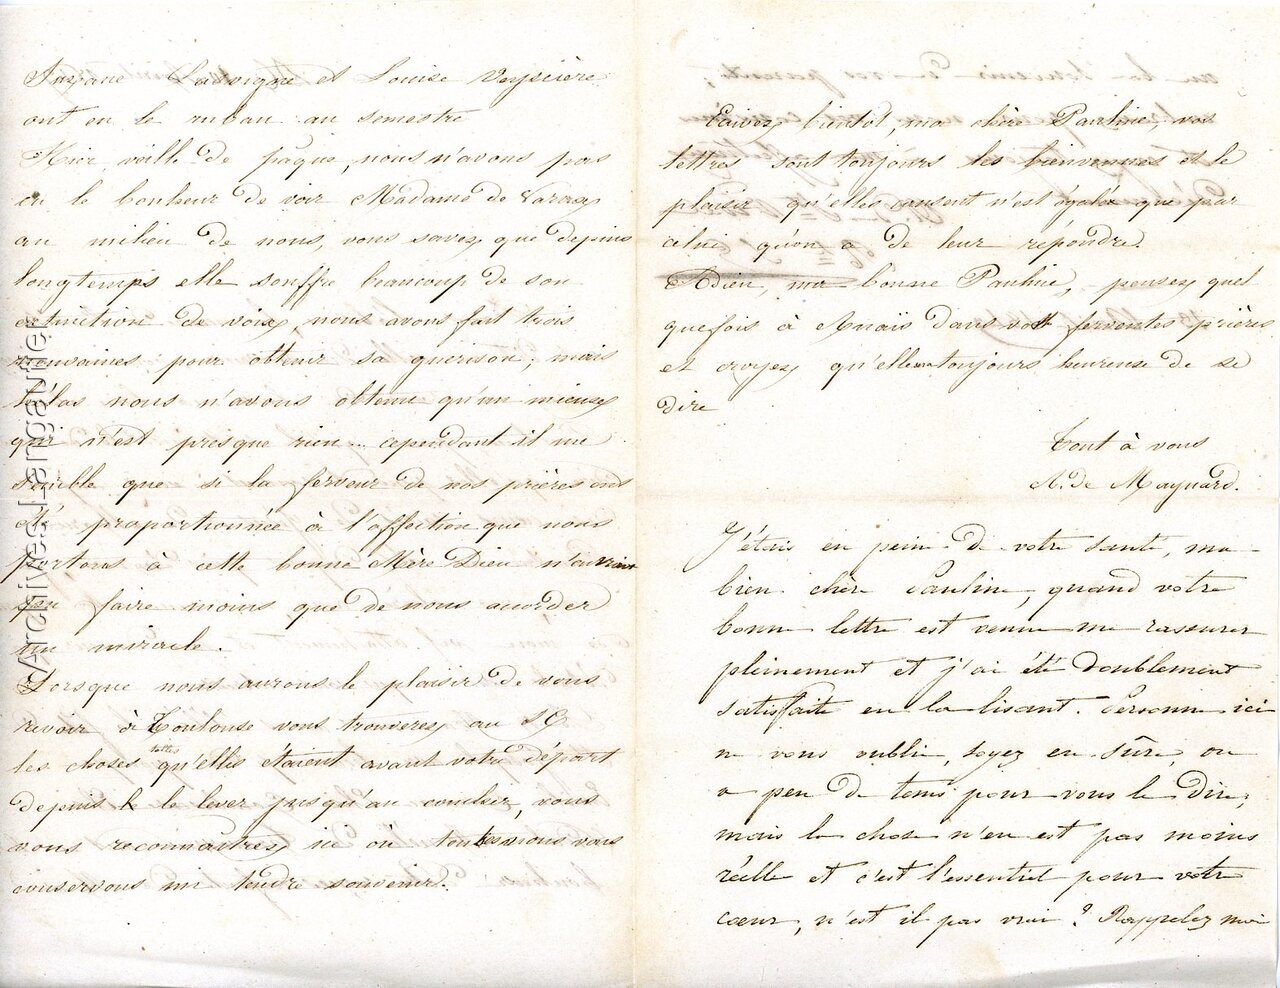 Lavergne et Louise Veyssière
ont eu le ruban au semestre
Hier, veille de pâque, nous n'avons pas
eu le bonheur de voir Madame de
au milieu de nous, vous savez que depuis
longtemps elle souffre beaucoup de son
extinction de voix, nous avons fait trois
neuvaines pour obtenir sa guérison, mais
hélas nous n'avons obtenu qu'un mieux
qui n'est presque rien... cependant il me
semble que si la ferveur de nos prières est
été proportionnée à l'affection que nous
portons à cette bonne Mère Dieu n'aurait
pu faire moins que de nous accorder
un miracle.
Lorsque nous aurons le plaisir de vous
revoir à Toulouse vous trouverez au SC
les choses telles qu'elles étaient avant votre départ
depuis le lever jusqu'au coucher, vous
vous reconnaîtrez ici où toutes nous vous
conservons un tendre souvenir.
Ecrivez bientôt, ma chère Pauline, vos
lettres sont toujours les bienvenues et le
plaisir qu'elles causent n'est égalé que par
celui qu'on a de leur répondre.
Adieu, ma bonne Pauline, pensez quel
quefois à Anaïs dans vos ferventes prières
et croyez qu'elle toujours heureuse de se
dire
Tout à vous
A. de Maynard.
J'étais en peine de votre santé, ma
bien chère Pauline, quand votre
bonne lettre est venue me rassurer
pleinement et j'ai été doublement
satisfaite en la lisant. Personne ici
ne vous oublie, soyez en sûre, on
a peu de tems pour vous le dire,
mais la chose n'en est pas moins
réelle et c'est l'essentiel pour votre
cœur, n'est il pas vrai ? Rappelez moi
Archives Langautier